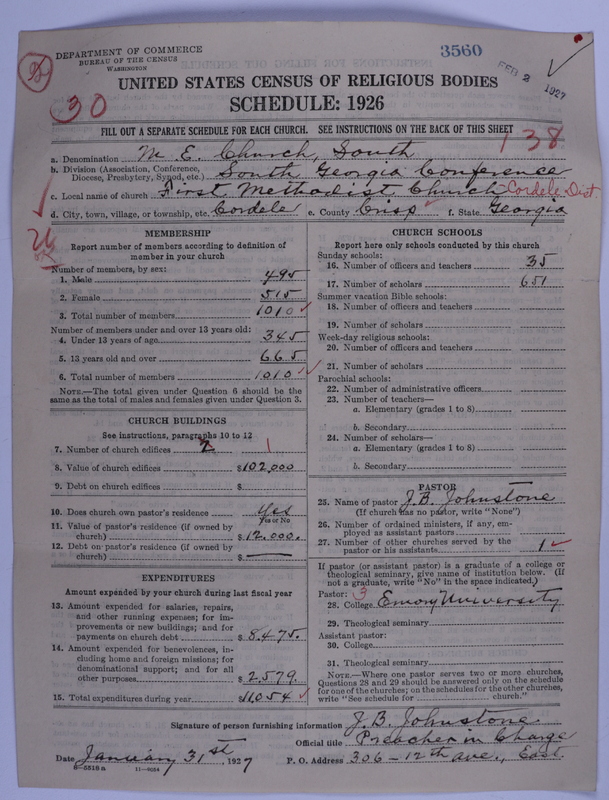 DEPARTMENT OF COMMERCE
BUREAU OF THE CENSUS
WASHINGTON
3560
FEB 2 1927
30
UNITED STATES CENSUS OF RELIGIOUS BODIES
SCHEDULE: 1926
FILL OUT A SEPARATE SCHEDULE FOR EACH CHURCH. SEE INSTRUCTIONS ON THE BACK OF THIS SHEET
138
a. Denomination M. E. Church, South
b. Division (Association, Conference, Diocese, Presbytery, Synod, etc.) South Georgia Conference
c. Local name of church First Methodist Church Cordele Dist.
d. City, town, village, or township, etc. Cordele e. County Crisp f. State Georgia
MEMBERSHIP
Report number of members according to definition of
member in your church
Number of members, by sex:
1. Male 495
2. Female 515
3. Total number of members 1010
Number of members under and over 13 years old:
4. Under 13 years of age 345
5. 13 years old and over 665
6. Total number of members 1010
NOTE.—The total given under Question 6 should be the
same as the total of males and females given under Question 3.
CHURCH BUILDINGS
See instructions, paragraphs 10 to 12
7. Number of church edifices 2 1
8. Value of church edifices $102,000
9. Debt on church edifices $
10. Does church own pastor's residence Yes
Yes or No
11. Value of pastor's residence (if owned by
church) $12,000.
12. Debt on pastor's residence (if owned by
church) $
EXPENDITURES
Amount expended by your church during last fiscal year
13. Amount expended for salaries, repairs,
and other running expenses; for im-
provements or new buildings; and for
payments on church debt $8,475.
14. Amount expended for benevolences, in-
cluding home and foreign missions; for
denominational support; and for all
other purposes $2,579.
15. Total expenditures during year $11,054
CHURCH SCHOOLS
Report here only schools conducted by this church
Sunday schools:
16. Number of officers and teachers 35
17. Number of scholars 651
Summer vacation Bible schools:
18. Number of officers and teachers
19. Number of scholars
Week-day religious schools:
20. Number of officers and teachers
21. Number of scholars
Parochial schools:
22. Number of administrative officers
23. Number of teachers—
a. Elementary (grades 1 to 8)
b. Secondary
24. Number of scholars—
a. Elementary (grades 1 to 8)
b. Secondary
PASTOR
25. Name of pastor J. B. Johnstone
(If church has no pastor, write "None")
26. Number of ordained ministers, if any, em-
ployed as assistant pastors
27. Number of other churches served by the
pastor or his assistants 1
If pastor (or assistant pastor) is a graduate of a college or
theological seminary, give name of institution below. (If
not a graduate, write "No" in the space indicated.)
Pastor: 3
28. College Emory University
29. Theological seminary
Assistant pastor:
30. College
31. Theological seminary
NOTE.—Where one pastor serves two or more churches,
Questions 28 and 29 should be answered only on the schedule
for one of the churches; on the schedules for the other churches,
write "See schedule for church."
Signature of person furnishing information J. B. Johnstone
Official title Preacher in Charge
Date January 31st, 1927 P. O. Address 306-12th ave., East.
8-5518a 11-9034